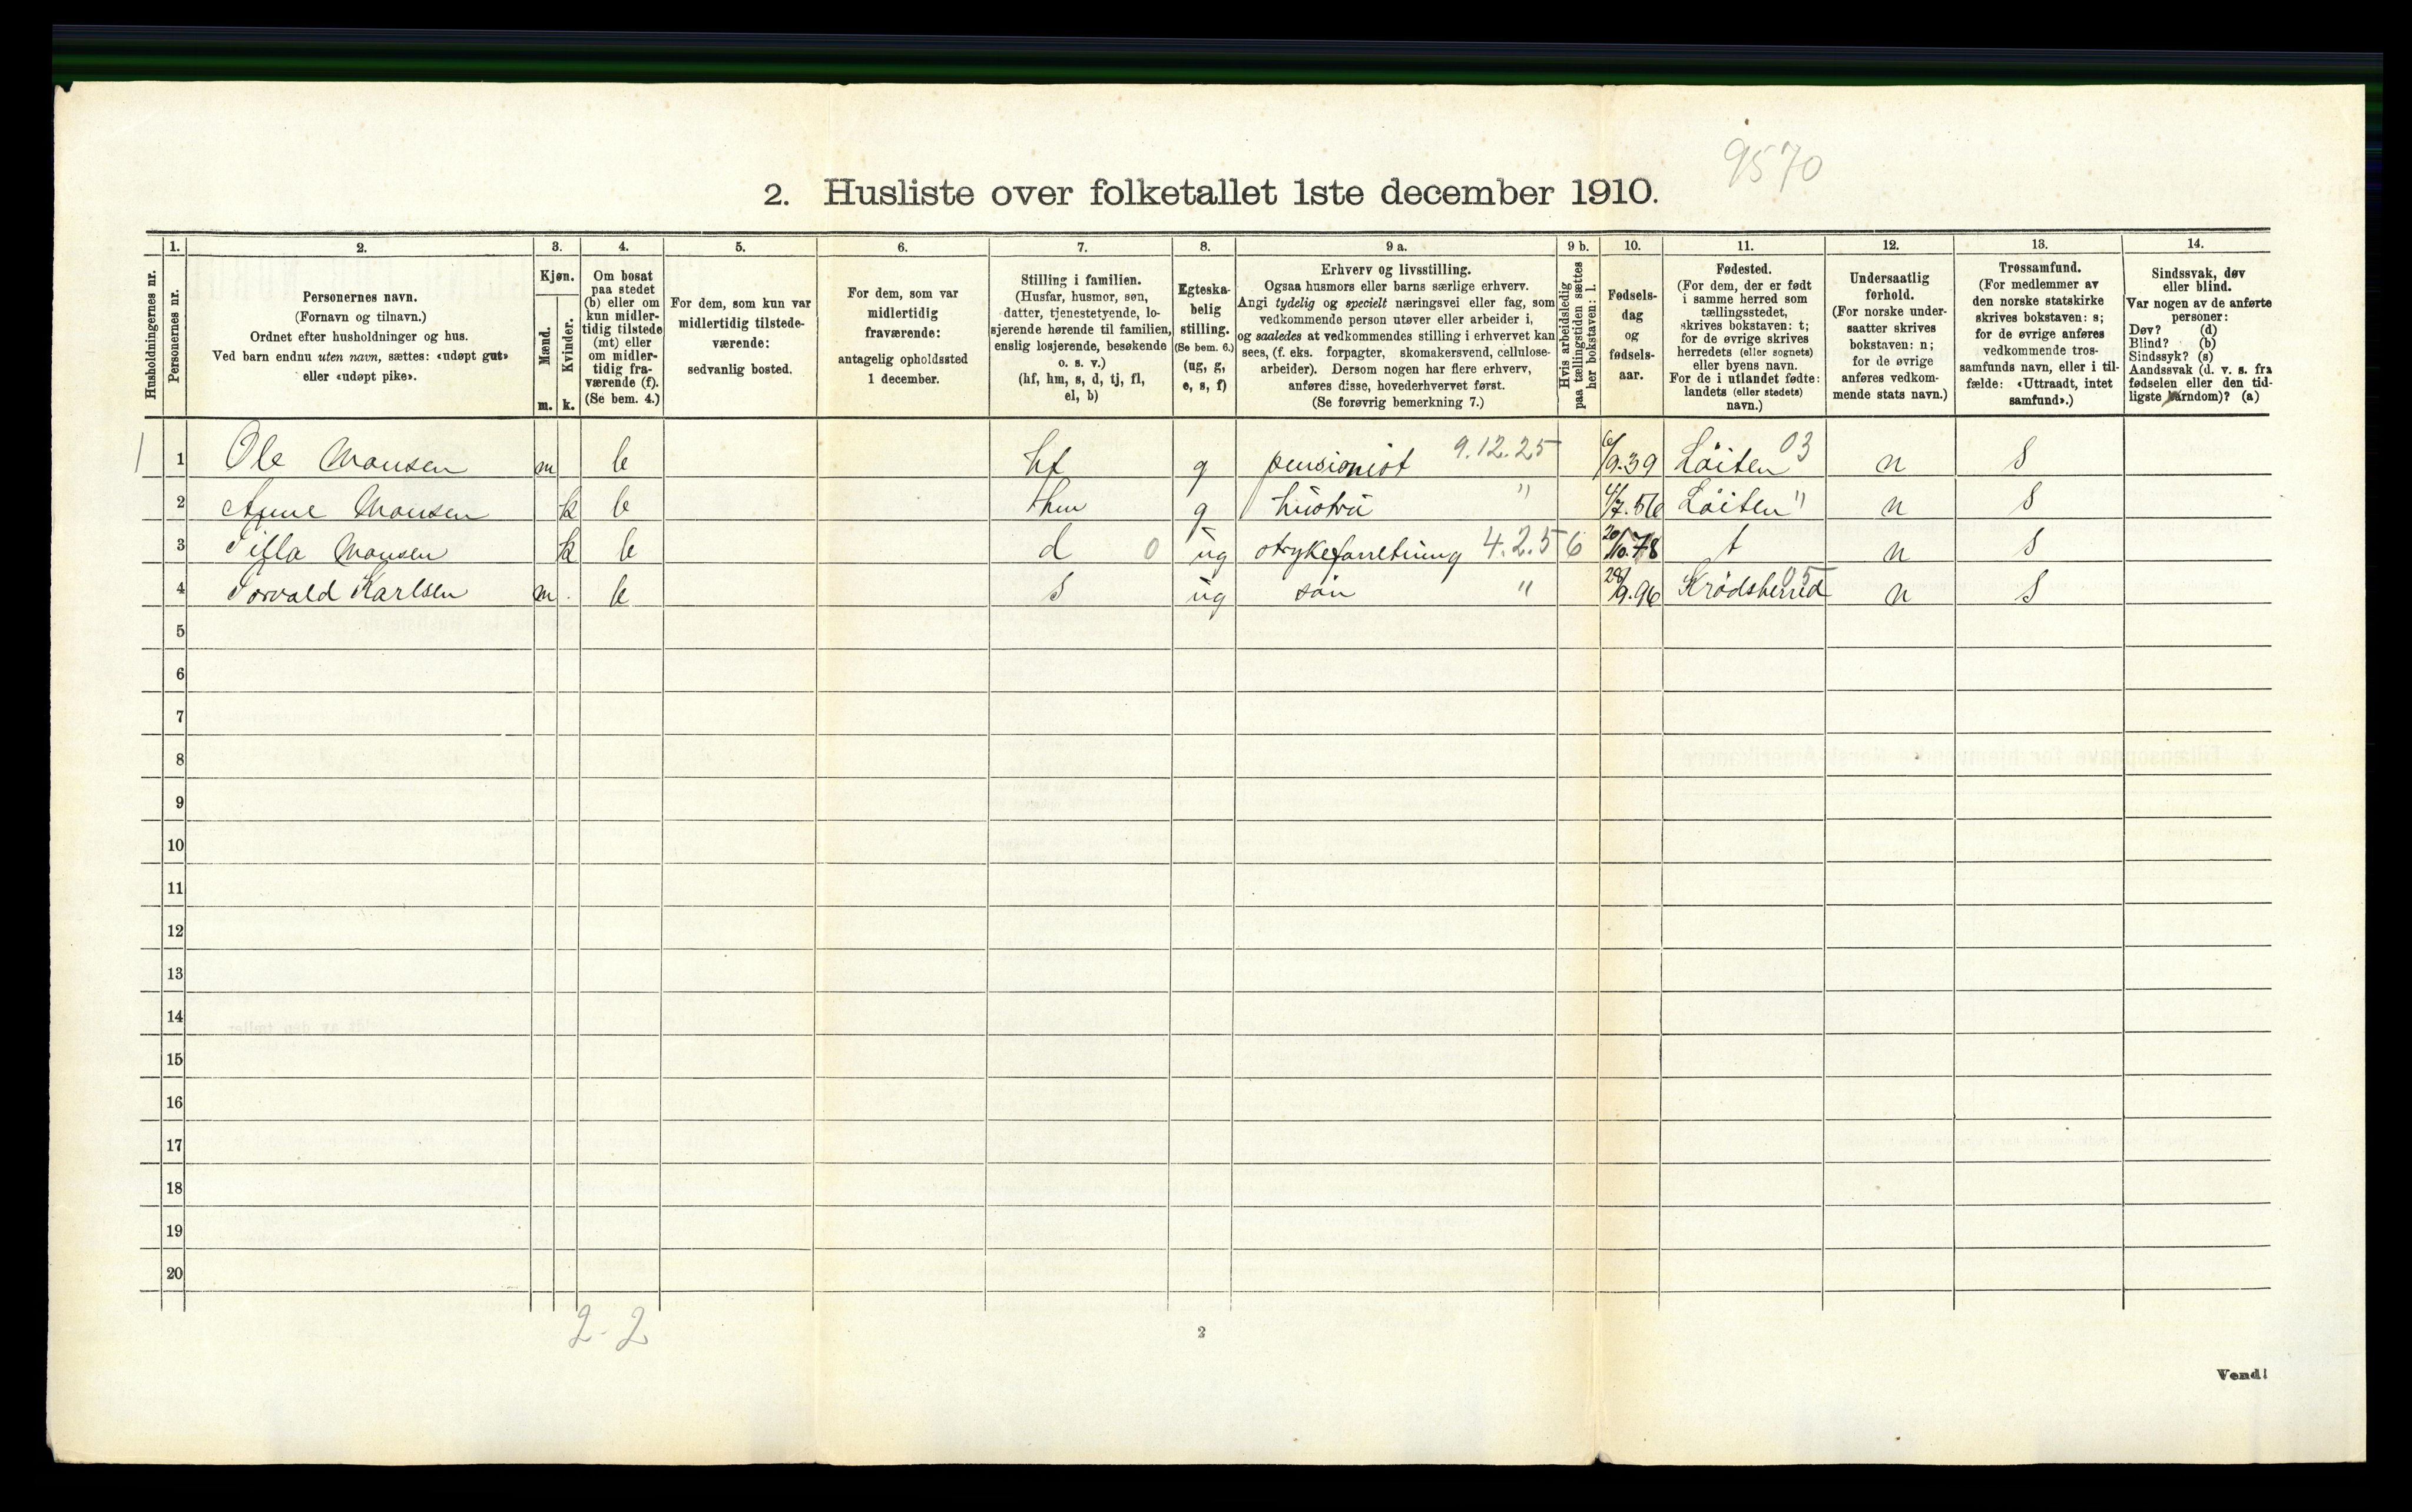 9570
2. Husliste over folketallet 1ste december 1910.
Husholdningernes nr.
1.
Personernes nr.
2.
Personernes navn.
(Fornavn og tilnavn.)
Ordnet efter husholdninger og hus.
Ved barn endnu uten navn, sættes: «udøpt gut»
eller «udøpt pike».
3.
Kjøn.
Mænd.
m.
Kvinder.
k.
4.
Om bosat
paa stedet
(b) eller om
kun midler-
tidig tilstede
(mt) eller
om midler-
tidig fra-
værende (f).
(Se bem. 4.)
5.
For dem, som kun var
midlertidig tilstede-
værende:
sedvanlig bosted.
6.
For dem, som var
midlertidig
fraværende:
antagelig opholdssted
1 december.
7.
Stilling i familien.
(Husfar, husmor, søn,
datter, tjenestetyende, lo-
sjerende hørende til familien,
enslig losjerende, besøkende
o. s. v.)
(hf, hm, s, d, tj, fl,
el, b)
8.
Egteska-
belig
stilling.
(Se bem. 6.)
(ug, g,
e, s, f)
9 a.
Erhverv og livsstilling.
Ogsaa husmors eller barns særlige erhverv.
Angi tydelig og specielt næringsvei eller fag, som
vedkommende person utøver eller arbeider i,
og saaledes at vedkommendes stilling i erhvervet kan
sees, (f. eks. forpagter, skomakersvend, cellulose-
arbeider). Dersom nogen har flere erhverv,
anføres disse, hovederhvervet først.
(Se forøvrig bemerkning 7.)
9 b.
Hvis arbeidsledig
paa tællingstiden sættes
her bokstaven: l.
10.
Fødsels-
dag
og
fødsels-
aar.
11.
Fødested.
(For dem, der er født
i samme herred som
tællingsstedet,
skrives bokstaven: t;
for de øvrige skrives
herredets (eller sognets)
eller byens navn.
For de i utlandet fødte:
landets (eller stedets)
navn.)
12.
Undersaatlig
forhold.
(For norske under-
saatter skrives
bokstaven: n;
for de øvrige
anføres vedkom-
mende stats navn.)
13.
Trossamfund.
(For medlemmer av
den norske statskirke
skrives bokstaven: s;
for de øvrige anføres
vedkommende tros-
samfunds navn, eller i til-
fælde: «Uttraadt, intet
samfund».)
14.
Sindssvak, døv
eller blind.
Var nogen av de anførte
personer:
Døv? (d)
Blind? (b)
Sindssyk? (s)
Aandssvak (d. v. s. fra
fødselen eller den tid-
ligste barndom)? (a)
1 1 Ole Mausen m b hf g pensionist 9.12.25 6/9.39 Löiten 03 n s
2 Anne Mausen k b hm g hüstrü " 4/7.56 Löiten " n s
3 Tilla Mausen k b d 0 üg strykeforretning 4.2.5 6 20/10.78 t n s
4 Torvald Karlsen m b s üg sön " 28/9.96 Krödsherred 05 n s
5
6
7
8
9
10
11
12
13
14
15
16
17
18
19
20
2-2
2
Vend!